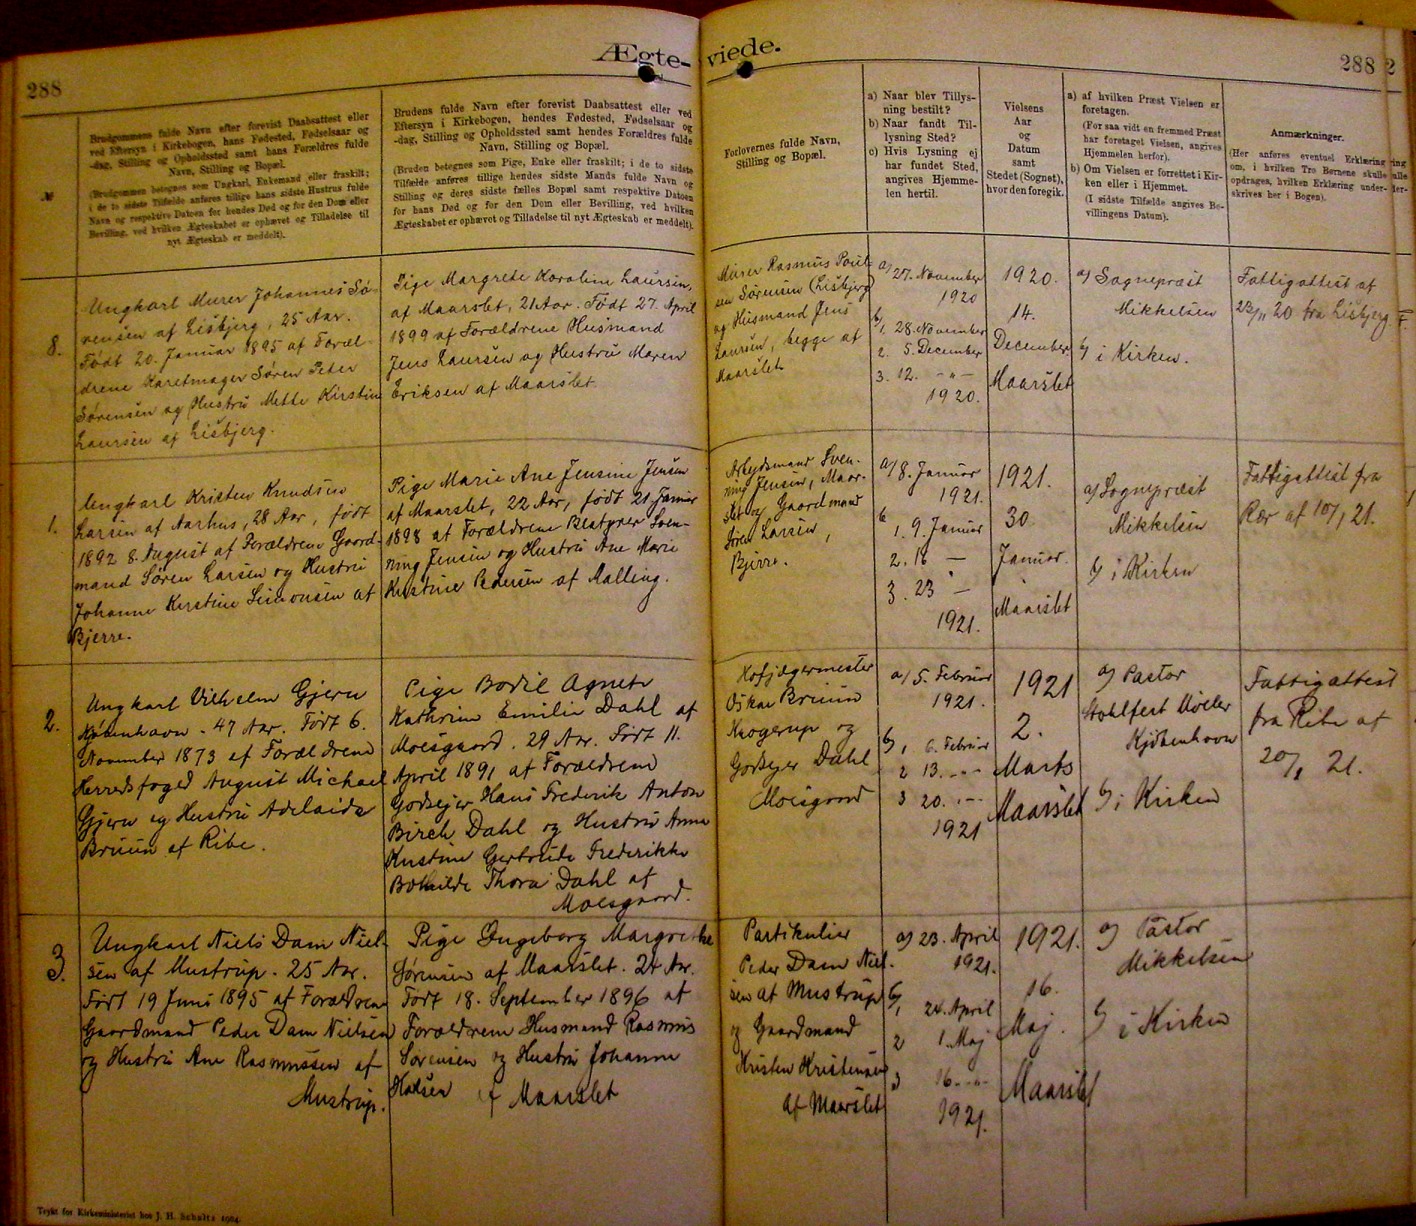 288
Ægte-
viede.
288
2
№
Brudgommens fulde Navn efter forevist Daabsattest eller
ved Eftersyn i Kirkebogen, hans Fødested, Fødselsaar og
-dag, Stilling og Opholdssted samt hans Forældres fulde
Navn, Stilling og Bopæl.
(Brudgommen betegnes som Ungkarl, Enkemand eller fraskilt;
i de to sidste Tilfælde anføres tillige hans sidste Hustrus fulde
Navn og respektive Datoen for hendes Død og for den Dom eller
Bevilling, ved hvilken Ægteskabet er ophævet og Tilladelse til
nyt Ægteskab er meddelt).
Brudens fulde Navn efter forevist Daabsattest eller ved
Eftersyn i Kirkebogen, hendes Fødested, Fødselsaar og
-dag, Stilling og Opholdssted samt hendes Forældres fulde
Navn, Stilling og Bopæl.
(Bruden betegnes som Pige, Enke eller fraskilt; i de to sidste
Tilfælde anføres tillige hendes sidste Mands fulde Navn og
Stilling og deres sidste fælles Bopæl samt respektive Datoen
for hans Død og for den Dom eller Bevilling, ved hvilken
Ægteskabet er ophævet og Tilladelse til nyt Ægteskab er meddelt).
Forlovernes fulde Navn,
Stilling og Bopæl.
a) Naar blev Tillys-
ning bestilt?
b) Naar fandt Til-
lysning Sted?
c) Hvis Lysning ej
har fundet Sted,
angives Hjemme-
len hertil.
Vielsens
Aar
og
Datum
samt
Stedet (Sognet),
hvor den foregik.
a) af hvilken Præst Vielsen er
foretagen.
(For saa vidt en fremmed Præst
har foretaget Vielsen, angives
Hjemmelen herfor).
b) Om Vielsen er forrettet i Kir-
ken eller i Hjemmet.
(I sidste Tilfælde angives Be-
villingens Datum).
Anmærkninger.
(Her anføres eventuel Erklæring
om, i hvilken Tro Børnene skulle
opdrages, hvilken Erklæring under-
skrives her i Bogen).
8.
Ungkarl Murer Johannes Sø-
rensen af Lisbjerg, 25 Aar.
Født 20. Januar 1895 af Foræl-
drene Karetmager Søren Peter
Sørensen og Hustru Mette Kirstine
Laursen af Lisbjerg.
Pige Margrete Karoline Laursen,
af Maarslet, 21 Aar. Født 27. April
1899 af Forældrene Husmand
Jens Laursen og Hustru Maren
Eriksen af Maarslet.
Murer Rasmus Poul-
sen Sørensen (Lisbjerg)
og Husmand Jens
Laursen, begge af
Maarslet.
a) 27. November
1920
b) 1. 28. November
2. 5. December
3. 12. - " -
1920.
1920.
14.
December
Maarslet
a) Sognepræst
Mikkelsen
b) i Kirken.
Fattigattest af
23/11 20 fra Lisbjerg
1.
Ungkarl Kristen Knudsen
Larsen af Aarhus, 28 Aar, født
1892 8. August af Forældrene Gaard-
mand Søren Larsen og Hustru
Johanne Kirstine Simonsen af
Bjerre.
Pige Marie Ane Jensine Jensen
af Maarslet, 22 Aar, født 21 Januar
1898 af Forældrene Bestyrer Sven-
ning Jensen og Hustru Ane Marie
Kirstine Pedersen af Malling.
Arbejdsmand Sven-
ning Jensen, Maar-
slet og Gaardmand
Søren Larsen,
Bjerre.
a) 8. Januar
1921.
b 1. 9. Januar
2. 16 —
3. 23 —
1921.
1921.
30.
Januar.
Maarslet
a) Sognepræst
Mikkelsen
b) i Kirken
Fattigattest fra
Rær af 10/1 21.
2.
Ungkarl Vilhelm Gjern
København. 47 Aar. Født 6.
November 1873 af Forældrene
Herredsfoged August Michael
Gjern og Hustru Adelaide
Bruun af Ribe.
Pige Bodil Agnete
Kathrine Emilie Dahl af
Moesgaard. 29 Aar. Født 11.
April 1891 af Forældrene
Godsejer Hans Frederik Anton
Birch Dahl og Hustru Anna
Kirstine Gertrude Frederikke
Bothilde Thora Dahl af
Moesgaard.
Hofjægermester
Oskar Bruun
Knogerup og
Godsejer Dahl
Moesgaard
a) 5. Februar
1921.
b) 1 6. Februar
2 13. - " -
3 20. - " -
1921
1921
2.
Marts
Maarslet
a) Pastor
Stohlfest Møller
Kjøbenhavn
b) i Kirken
Fattigattest
fra Ribe af
20/1 21.
3.
Ungkarl Niels Dam Niel-
sen af Mustrup. 25 Aar.
Født 19 Juni 1895 af Forældrene
Gaardmand Peder Dam Nielsen
og Hustru Ane Rasmussen af
Mustrup.
Pige Ingeborg Margrethe
Sørensen af Maarslet. 24 Aar.
Født 18. September 1896 af
Forældrene Husmand Rasmus
Sørensen og Hustru Johanne
Madsen af Maarslet
Partikulier
Peder Dam Niel-
sen af Mustrup
og Gaardmand
Kristen Kristensen
af Maarslet
a) 23. April
1921.
b) 1 24. April
2 1. Maj
3 16 - " -
1921.
1921.
16.
Maj.
Maarslet
a) Pastor
Mikkelsen
b) i Kirken
Trykt for Kirkeministeriet hos J. H. Schultz 1904.